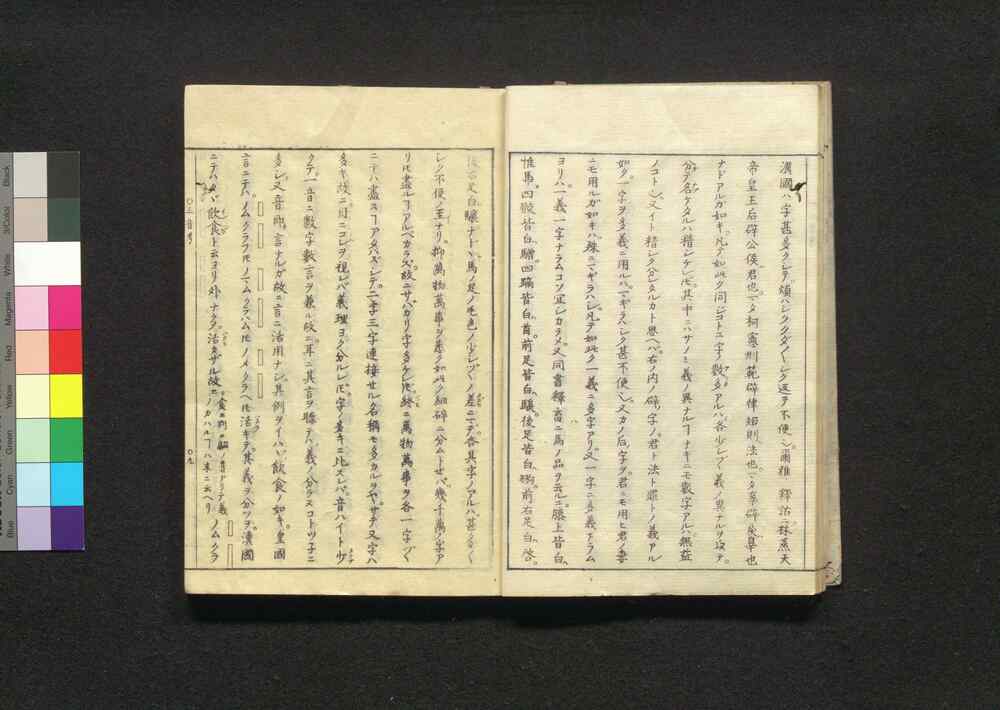 漢國ハ字甚多クシテ煩ハシククダ〲シク返テ不便シ爾雅ニ釋詁ニ林烝天
帝皇王后辟公侯君也マタ柯憲刑範辟律矩則法也マタ辜辟戾皐也
ナドアルガ如キ凡テ如此ク同ジコトニ字ノ數多アルハ各少シヅヽ義ノ異ナルヲ以テ
分テ名ケタルハ精シケレ𪜈其中ニハサノミ義ノ異ナルヿナキニモ數字アルハ無益
ノコトシ又イト精シク分タルカト思ヘバ右ノ内ノ辟ノ字ノ君ト法ト罪トノ義アル
如ク一字ヲ多義ニ用ルハマギラハシク甚不便シ又カノ后ノ字ヲ君ニモ用ヒ君ノ妻
ニモ用ルガ如キハ殊ニマギラハシ凡テ如此ク一義ニ多字アリ又一字ニ多義アラム
ヨリハ一義一字ナラムコソ宜シカラメ又同書釋畜ニ馬ノ品ヲ云ルニ膝上皆白
惟馬四骹皆白驓四蹢皆白首前足皆白騱後足皆白翑前右足白啓
後右足白驤ナド馬ノ足ノ毛色ノ少シヅヽノ差ニテ各其字ノアルハ甚多ク
シク不便ノ至ナリ抑萬物萬事ヲ悉ク如此ク細碎ニ分ムトセバ幾千萬ノ字ア
リ𪜈盡ルヿアルベカラズ故ニサバカリ字多ケレ𪜈終ニ萬物萬事ヲ各一字ヅヽ
ニテハ盡スヿアタハズシテ二字三字連接セル名稱モ多カルヲヤサテ又字ハ
多キ故ニ目ニコレヲ視レバ義理ヨク分ルレ𪜈字ノ多キニ比スレバ音ハイト少
クテ一音ニ數字數言ヲ兼ル故ニ耳ニ其言ヲ聽テハ義ノ分ラヌコトツ子ニ
多シ又音即言ナルガ故ニ言ニ活用ナシ其例ヲイハヾ飲食ノ如キ皇國
言ニテハノムクラフ𪜈ノマムクラハム𪜈ノメクラヘ𪜈活キテ其義ヲ分ツヲ漢國
ニテハタヾ飲食ト云ヨリ外ナク活カザル故ニノムクラ
フノカハルヿハ末ニ云ヘリ
○三音考